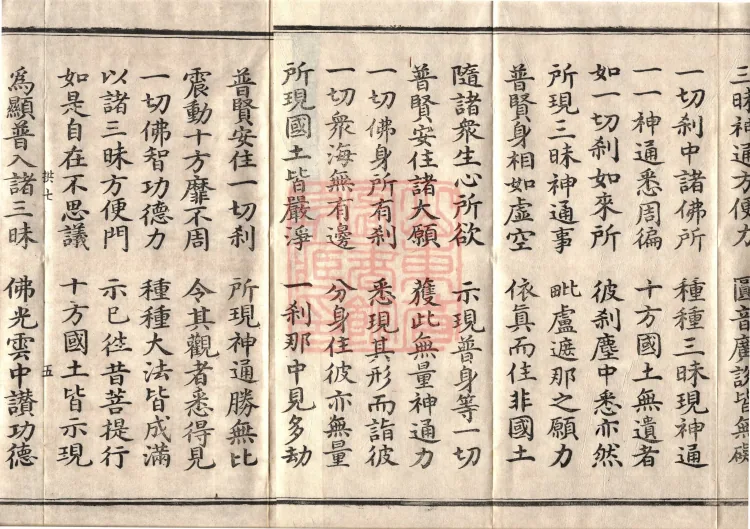 三昧神通方便力 圓音廣說皆無礙
一切剎中諸佛所 種種三昧現神通
一一神通悉周徧 十方國土無遺者
如一切剎如來所 彼剎塵中悉亦然
所現三昧神通事 毗盧遮那之願力
普賢身相如虛空 依真而住非國土
隨諸衆生心所欲 示現普身等一切
普賢安住諸大願 獲此無量神通力
一切佛身所有剎 悉現其形而詣彼
一切衆海無有邊 分身住彼亦無量
所現國土皆嚴淨 一剎那中見多劫
普賢安住一切剎 所現神通勝無比
震動十方靡不周 令其觀者悉得見
一切佛智功德力 種種大法皆成滿
以諸三昧方便門 示已往昔菩提行
如是自在不思議 十方國土皆示現
拱七 五
為顯普入諸三昧 佛光雲中讚功德